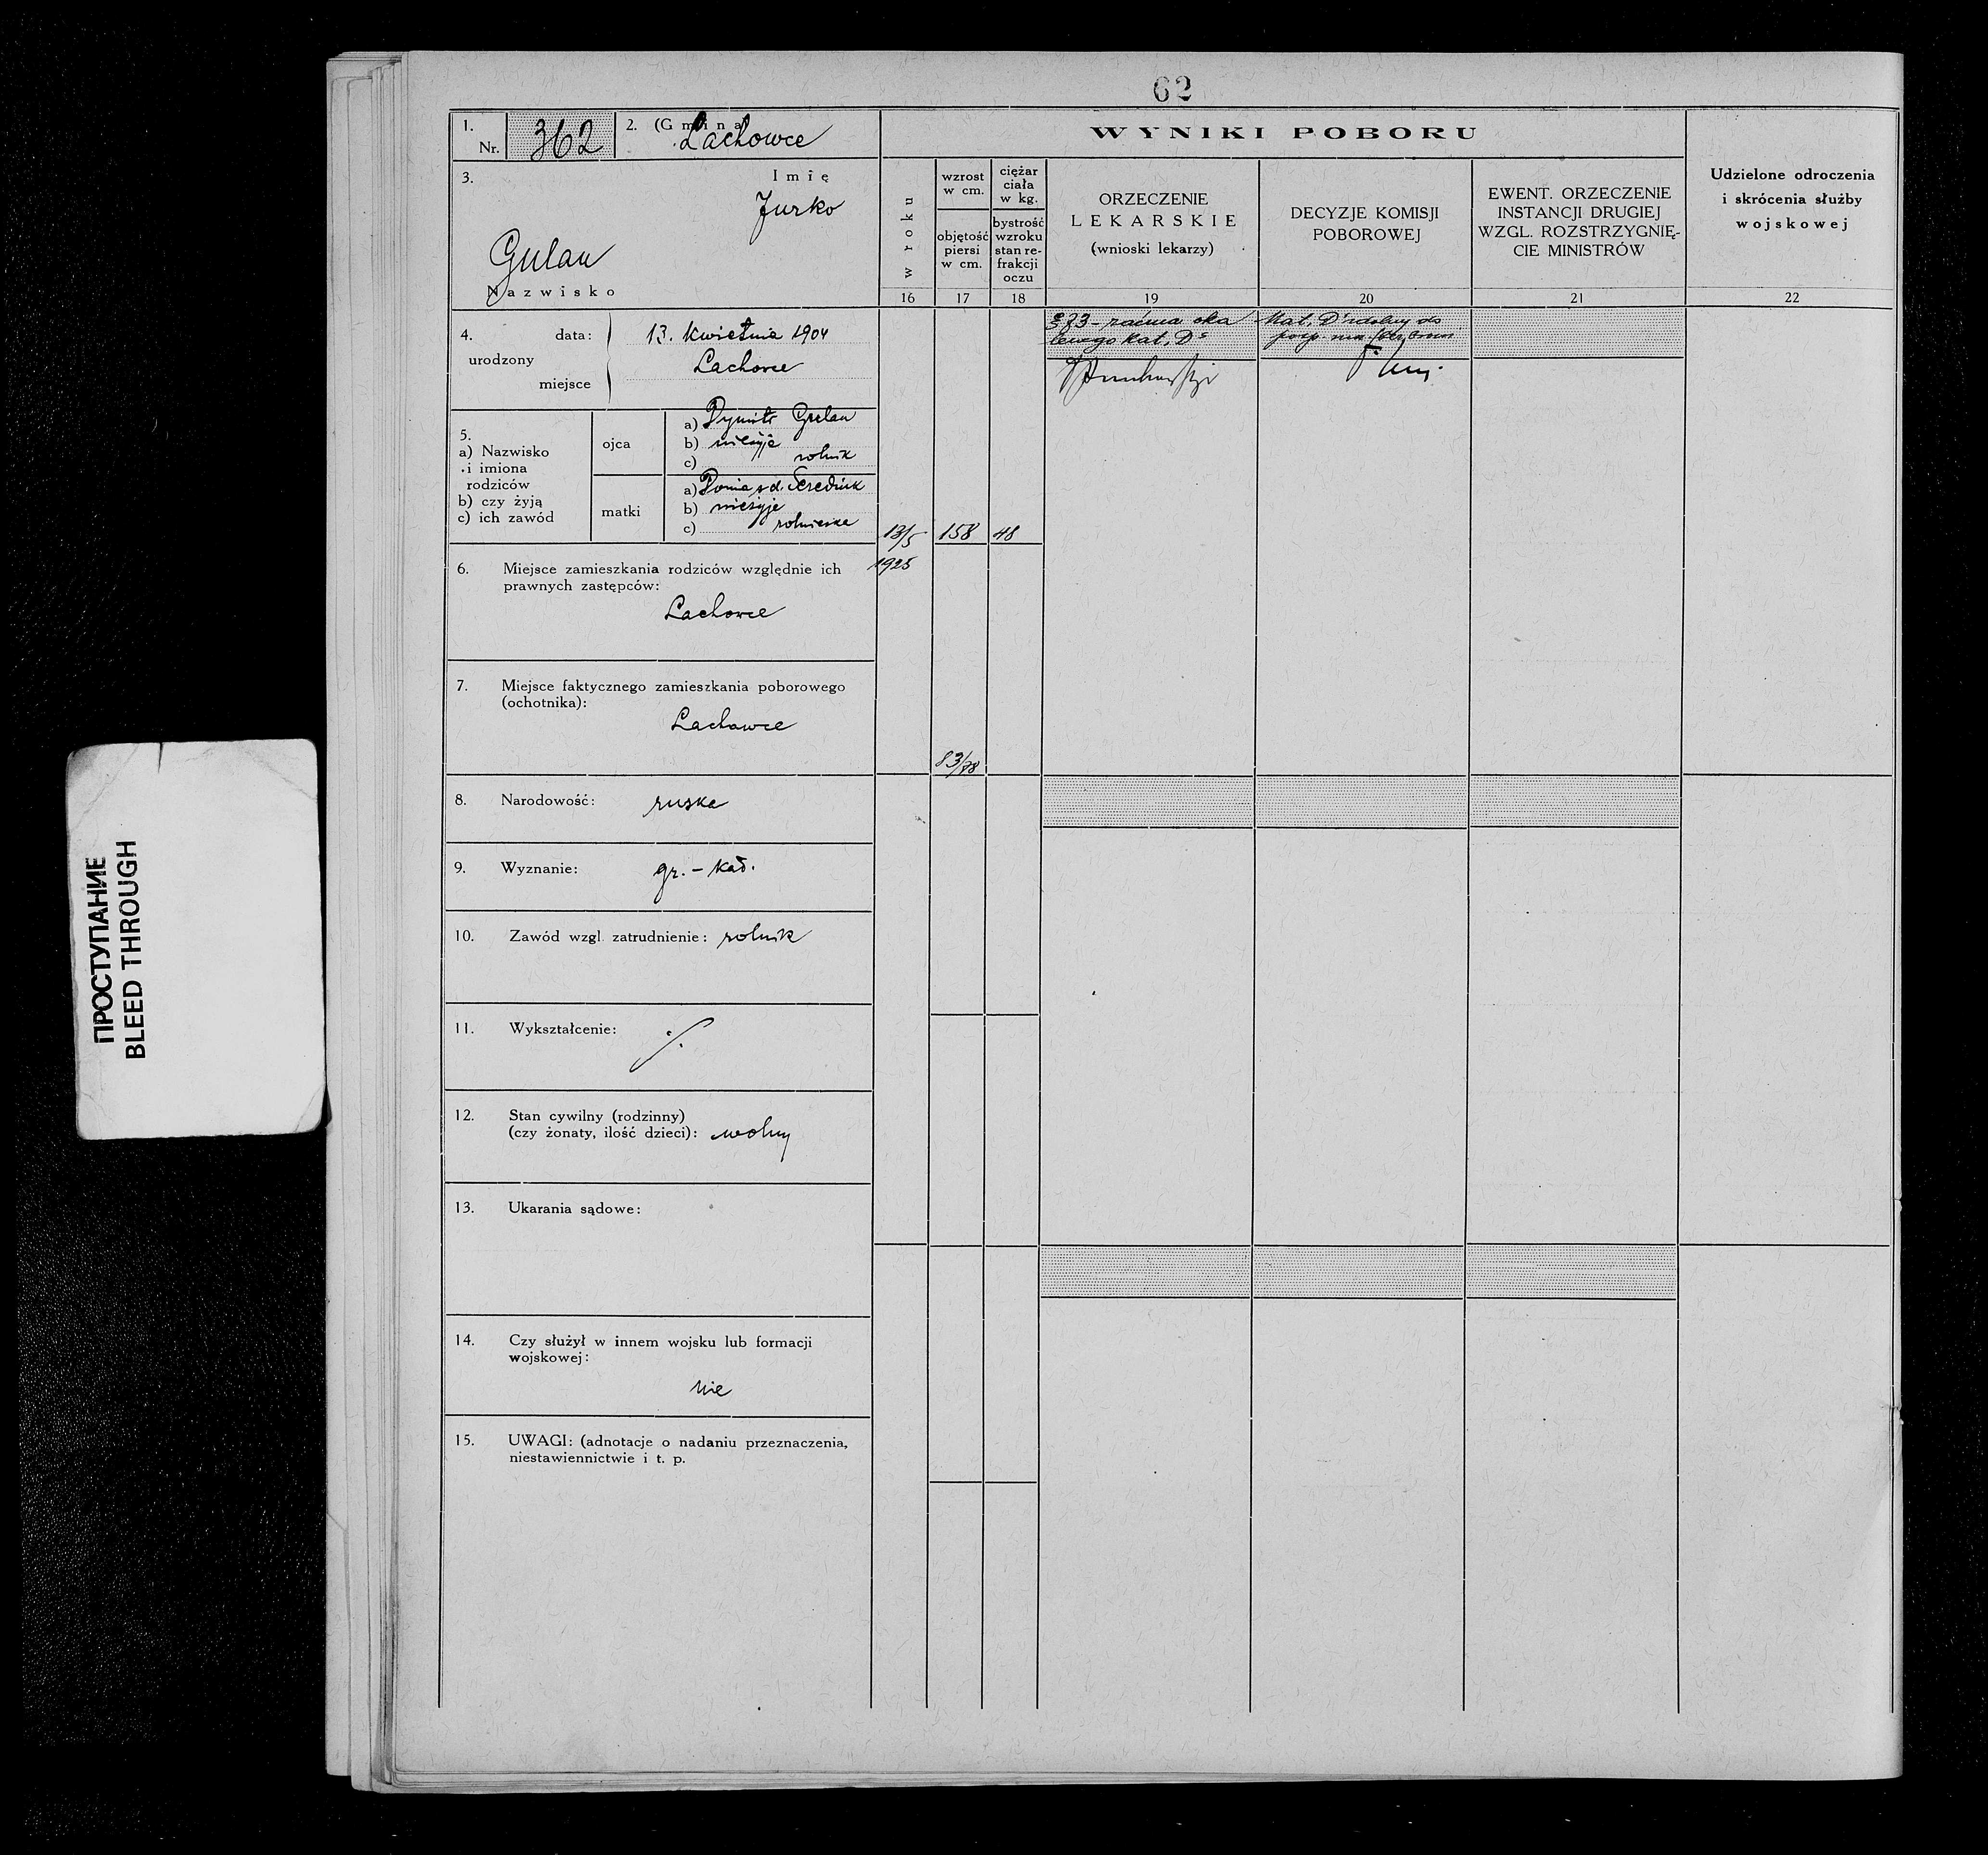 62
1. Nr. 362 2. (Gmina) Lachowce
3. Imię
Jurko
Gulan
Nazwisko
4. urodzony data: 13. kwietnia 1904
miejsce Lachowce
5.
a) Nazwisko i imiona rodziców
b) czy żyją
c) ich zawód
ojca
a) Dymitr Gulan
b) nieżyje
c) rolnik
matki
a) Donia z d. Serediuk
b) nieżyje
c) rolniczka
6. Miejsce zamieszkania rodziców względnie ich
prawnych zastępców:
Lachowce
7. Miejsce faktycznego zamieszkania poborowego
(ochotnika):
Lachowce
8. Narodowość: ruska
9. Wyznanie: gr.-kat.
10. Zawód wzgl. zatrudnienie: rolnik
11. Wykształcenie: ·/.
12. Stan cywilny (rodzinny)
(czy żonaty, ilość dzieci): wolny
13. Ukarania sądowe:
14. Czy służył w innem wojsku lub formacji
wojskowej:
nie
15. UWAGI: (adnotacje o nadaniu przeznaczenia,
niestawiennictwie i t. p.
WYNIKI POBORU
w roku
16
wzrost
w cm.
objętość
piersi
w cm.
17
ciężar
ciała
w kg.
bystrość
wzroku
stan re-
frakcji
oczu
18
ORZECZENIE
LEKARSKIE
(wnioski lekarzy)
19
DECYZJE KOMISJI
POBOROWEJ
20
EWENT. ORZECZENIE
INSTANCJI DRUGIEJ
WZGL. ROZSTRZYGNIĘ-
CIE MINISTRÓW
21
Udzielone odroczenia
i skrócenia służby
wojskowej
22
13/5
1925
158
48
83/78
oka
lewego kat. D
Kat. D zdolny do
posp. rusz.
ПРОСТУПАНИЕ
BLEED THROUGH